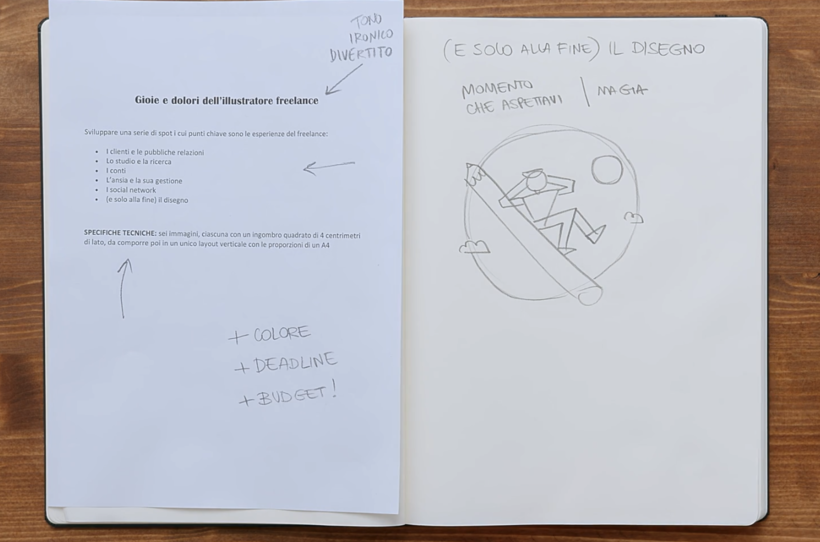 TONO
IRONICO
DIVERTITO
Gioie e dolori dell'illustratore freelance
Sviluppare una serie di spot i cui punti chiave sono le esperienze del freelance:
• I clienti e le pubbliche relazioni
• Lo studio e la ricerca
• I conti
• L'ansia e la sua gestione
• I social network
• (e solo alla fine) Il disegno
SPECIFICHE TECNICHE: sei immagini, ciascuna con un ingombro quadrato di 4 centrimetri
di lato, da comporre poi in un unico layout verticale con le proporzioni di un A4
+ COLORE
+ DEADLINE
+ BUDGET!
(E SOLO ALLA FINE) IL DISEGNO
MOMENTO
CHE ASPETTAVI
MAGIA